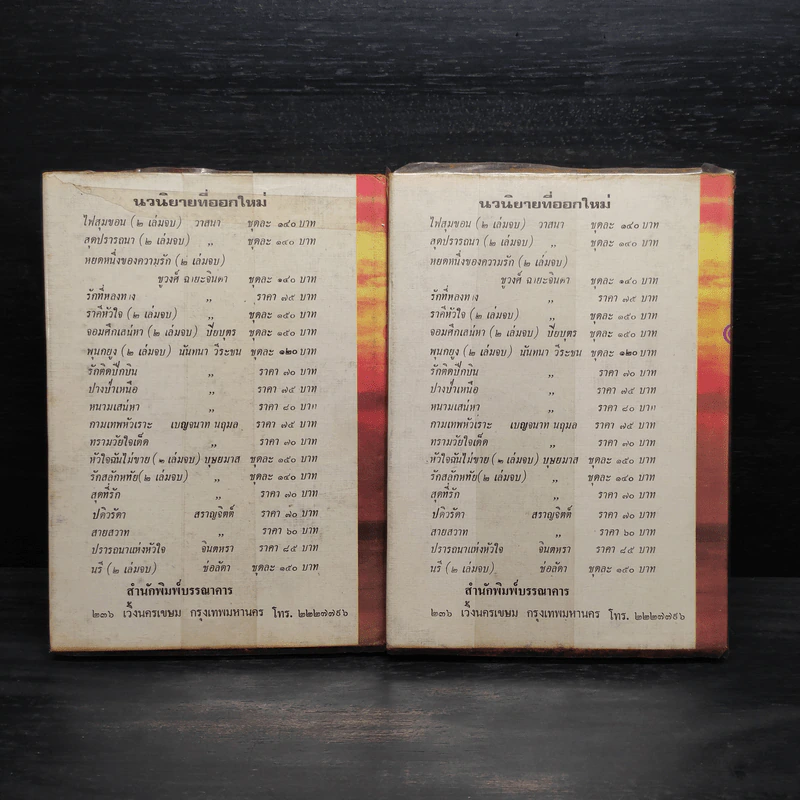 นวนิยายที่ออกใหม่
ไฟสุมขอน (๒ เล่มจบ) วาสนา ชุดละ ๑๔๐ บาท
สุดปรารถนา (๒ เล่มจบ) ,, ชุดละ ๑๔๐ บาท
หยดหนึ่งของความรัก (๒ เล่มจบ)
ชูวงศ์ ฉายะจินดา ชุดละ ๑๔๐ บาท
รักที่หลงทาง ,, ราคา ๗๕ บาท
ราคีหัวใจ (๒ เล่มจบ) ,, ชุดละ ๑๕๐ บาท
จอมศึกเสน่หา (๒ เล่มจบ) ปิยบุตร ชุดละ ๑๕๐ บาท
พุนกยูง (๒ เล่มจบ) นันทนา วีระชน ชุดละ ๑๒๐ บาท
รักติดปีกบิน ,, ราคา ๗๐ บาท
ปางป่าเหนือ ,, ราคา ๗๕ บาท
หนามเสน่หา ,, ราคา ๘๐ บาท
กามเทพหัวเราะ เบญจนาท นฤมล ราคา ๗๕ บาท
ทรามวัยใจเด็ด ,, ราคา ๗๐ บาท
หัวใจฉันไม่ขาย (๒ เล่มจบ) บุษยมาส ชุดละ ๑๕๐ บาท
รักสลักหทัย (๒ เล่มจบ) ,, ชุดละ ๑๔๐ บาท
สุดที่รัก ,, ราคา ๗๐ บาท
ปดิวรัดา สราญจิตต์ ราคา ๗๐ บาท
สายสวาท ,, ราคา ๖๐ บาท
ปรารถนาแห่งหัวใจ จินตหรา ราคา ๘๕ บาท
นรี (๒ เล่มจบ) ช่อลัดา ชุดละ ๑๕๐ บาท
สำนักพิมพ์บรรณาคาร
๒๓๖ เวิ้งนครเขษม กรุงเทพมหานคร โทร. ๒๒๒๗๗๙๖
นวนิยายที่ออกใหม่
ไฟสุมขอน (๒ เล่มจบ) วาสนา ชุดละ ๑๔๐ บาท
สุดปรารถนา (๒ เล่มจบ) ,, ชุดละ ๑๔๐ บาท
หยดหนึ่งของความรัก (๒ เล่มจบ)
ชูวงศ์ ฉายะจินดา ชุดละ ๑๔๐ บาท
รักที่หลงทาง ,, ราคา ๗๕ บาท
ราคีหัวใจ (๒ เล่มจบ) ,, ชุดละ ๑๕๐ บาท
จอมศึกเสน่หา (๒ เล่มจบ) ปิยบุตร ชุดละ ๑๕๐ บาท
พุนกยูง (๒ เล่มจบ) นันทนา วีระชน ชุดละ ๑๒๐ บาท
รักติดปีกบิน ,, ราคา ๗๐ บาท
ปางป่าเหนือ ,, ราคา ๗๕ บาท
หนามเสน่หา ,, ราคา ๘๐ บาท
กามเทพหัวเราะ เบญจนาท นฤมล ราคา ๗๕ บาท
ทรามวัยใจเด็ด ,, ราคา ๗๐ บาท
หัวใจฉันไม่ขาย (๒ เล่มจบ) บุษยมาส ชุดละ ๑๕๐ บาท
รักสลักหทัย (๒ เล่มจบ) ,, ชุดละ ๑๔๐ บาท
สุดที่รัก ,, ราคา ๗๐ บาท
ปดิวรัดา สราญจิตต์ ราคา ๗๐ บาท
สายสวาท ,, ราคา ๖๐ บาท
ปรารถนาแห่งหัวใจ จินตหรา ราคา ๘๕ บาท
นรี (๒ เล่มจบ) ช่อลัดา ชุดละ ๑๕๐ บาท
สำนักพิมพ์บรรณาคาร
๒๓๖ เวิ้งนครเขษม กรุงเทพมหานคร โทร. ๒๒๒๗๗๙๖